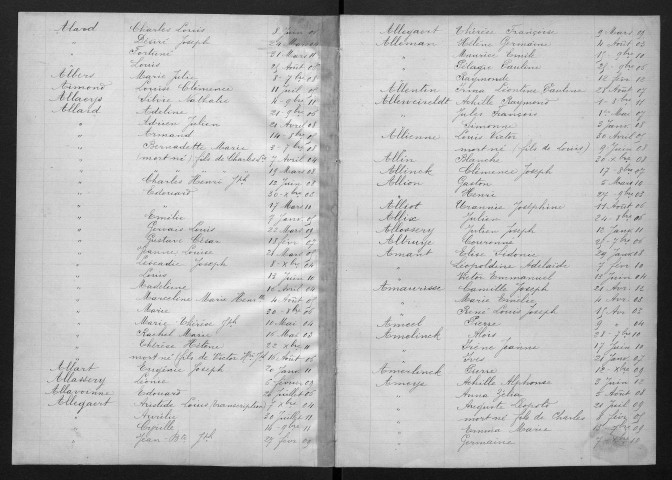 Alard Charles Louis 8 Juin 05
" Désiré Joseph 24 Mars
" Fortuné 21 Mars 11
" Louis 25 Août
Albers Marie Julie 8 7bre 08
Almond Louise Clémence 11 Juil 05
Allaeys Silvie Nathalie 4 9bre 11
Allard Adeline 21 9bre 06
" Adrien Julien 21 Avril 08
" Armand 14 8bre
" Bernadette Marie 5 7bre 08
" mort né (fils de Charles) 7 Avril 04
" " " 19 Mars 03
" Charles Henri Jph 12 Juin 08
" Edouard 30 Xbre 03
" " 17 Mars 10
" Emilie 7 Janv 05
" Gervais Louis 22 Mars 09
" Gustave César 18 Févr 07
" Jeanne Louise 21 Mars 07
" Léocadie Joseph 8 Xbre 04
" Louis 12 Juin 10
" Madeleine 10 Avril 04
" Marceline Marie Henrtte 4 Août 05
" Marie 20 8bre 06
" Marie Thérèse Jph 10 Mai 04
" Rachel Marie 16 Mai 03
" Thérèse Hélène 22 Xbre 11
" mort né (fils de Victor Hri Jph) 16 Août 06
Allart Eugénie Joseph 20 Janv 11
Allassery Léonie 5 Févr 09
Allavoinne Edouard 26 Juillet 05
Allegaert Aristide Louis (transcription) 7 Xbre 04
" Aurélie 20 Juillet
" Camille 14 9bre 11
" Jean Bte Jph 27 Févr 09
Allegaert Thérèse Françoise 9 Mars 05
Alleman Hélène Germaine 4 Août 03
" Maurice Emile 11 9bre 10
" Pélagie Pauline 25 9bre 06
" Raymonde 10 Févr 12
Allentin Irma Léontine Pauline 28 Août 07
Allerweireldt Achille Raymond 1 8bre 11
" Jules François 1er Mai 07
" Simonne 2 Janv 08
Allienne Louis Victor 30 Avril 05
" mort né (fils de Louis) 9 Juin 03
Allin Blanche 20 Xbre 08
Allinck Clémence Joseph 17 8bre 07
Allion Gaston 5 Mars 10
" Henri 27 9bre 03
Alliot Urannie Joséphine 11 Août 06
Allix Julien 24 8bre 06
Allossery Julien Joseph 12 Janv 10
Albruye Couronne 25 7bre 06
Amant Elise Sidonie 29 Janv 08
" Léopoldine Adélaïde 7 Févr 10
" Victor Emmanuel 15 Juin 04
Amaurisse Camille Joseph 26 Avr 12
" Marie Emélie 4 Avr 03
" René Louis Joseph 15 Avr 05
Ameel Pierre 9 14
Amelinck Aloïs 23 9bre 10
" Irène Jeanne 17 Juin 10
" Yves 21 Janv 07
Amerlinck Pierre 10 Xbre 09
Amorys Achille Alphonse 2 Juin 02
" Anna Zélia 2 Août 05
" Auguste Léopold 20 Juil 09
" mort né fils de Charles 1 Févr 05
" Emma Marie 15 9bre 03
" Germaine 7 Xbre 10